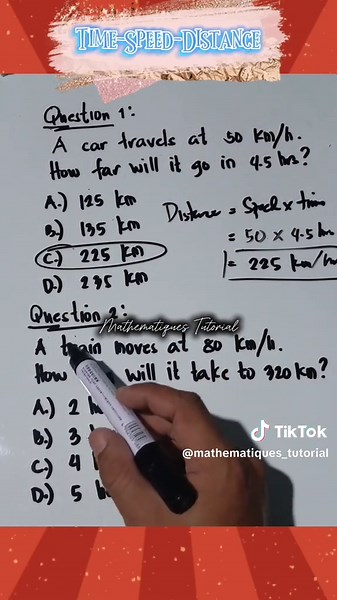 TIME-SPEED-DISTANCE
Question 1:
A car travels at 50 km/h.
How far will it go in 4.5 hrs?
A.) 125 km
B.) 135 km
C.) 225 km
D.) 235 km
Distance = Speed x time
= 50 x 4.5 hrs
= 225 km/h
Question 2:
Mathematiques Tutorial
A train moves at 80 km/h.
How will it take to 320 km?
A.) 2 h
B.) 3
C.) 4
D.) 5 h
TikTok
@mathematiques_tutorial